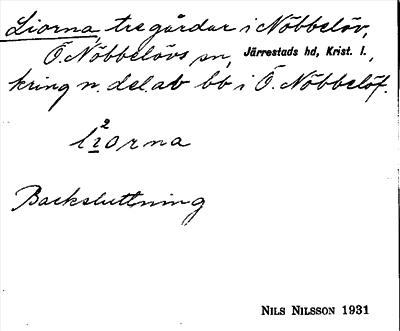 Liorna, tre gårdar i Nöbbelöv,
Ö. Nöbbelövs sn, Järrestads hd, Krist. l.,
kring n. del. av bb i Ö. Nöbbelöf.
li²orna
Backsluttning
NILS NILSSON 1931